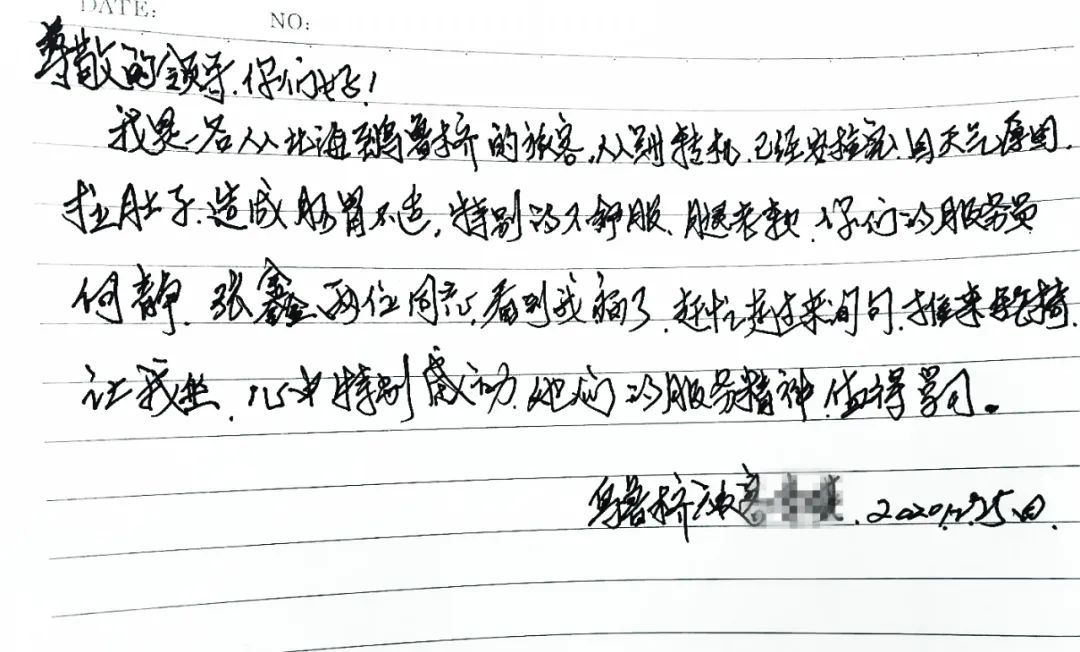 DATE: NO:
尊敬的领导,你们好!
我是一名从北海到乌鲁木齐的旅客,从 转机,已经安检完,因天气原因,
拉肚子,造成肠胃不适,特别的不舒服,腿老软,你们的服务员
何静、张鑫两位同志,看到我病了,赶忙赶过来问句,推来轮椅,
让我坐,心中特别感动,她们的服务精神值得学习。
乌鲁木齐 2020, 25日.